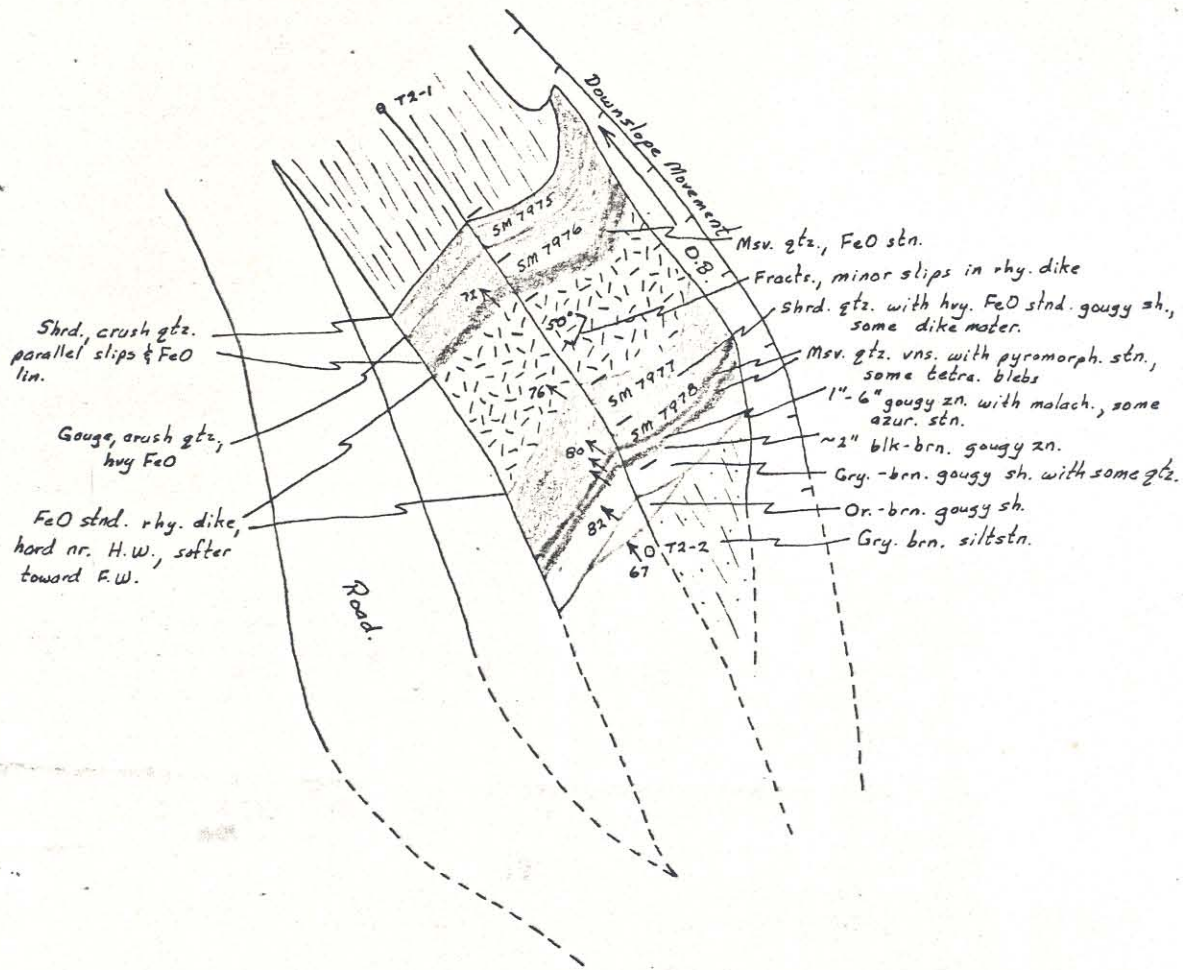 T2-1
Downslope Movement
O.B.
SM 7975
SM 7976
72
50°
76
SM 7977
SM 7978
80
82
67
O T2-2
Road.
Shrd., crush qtz.
parallel slips & FeO
lin.
Gouge, crush qtz,
hvy FeO
FeO stnd. rhy. dike,
hard nr. H.W., softer
toward F.W.
Msv. qtz., FeO stn.
Fracts., minor slips in rhy. dike
Shrd. qtz. with hvy. FeO stnd. gougy sh.,
some dike mater.
Msv. qtz. vns. with pyromorph. stn.,
some tetra. blebs
1"-6" gougy zn. with malach., some
azur. stn.
~2" blk-brn. gougy zn.
Gry.-brn. gougy sh. with some qtz.
Or.-brn. gougy sh.
Gry. brn. siltstn.